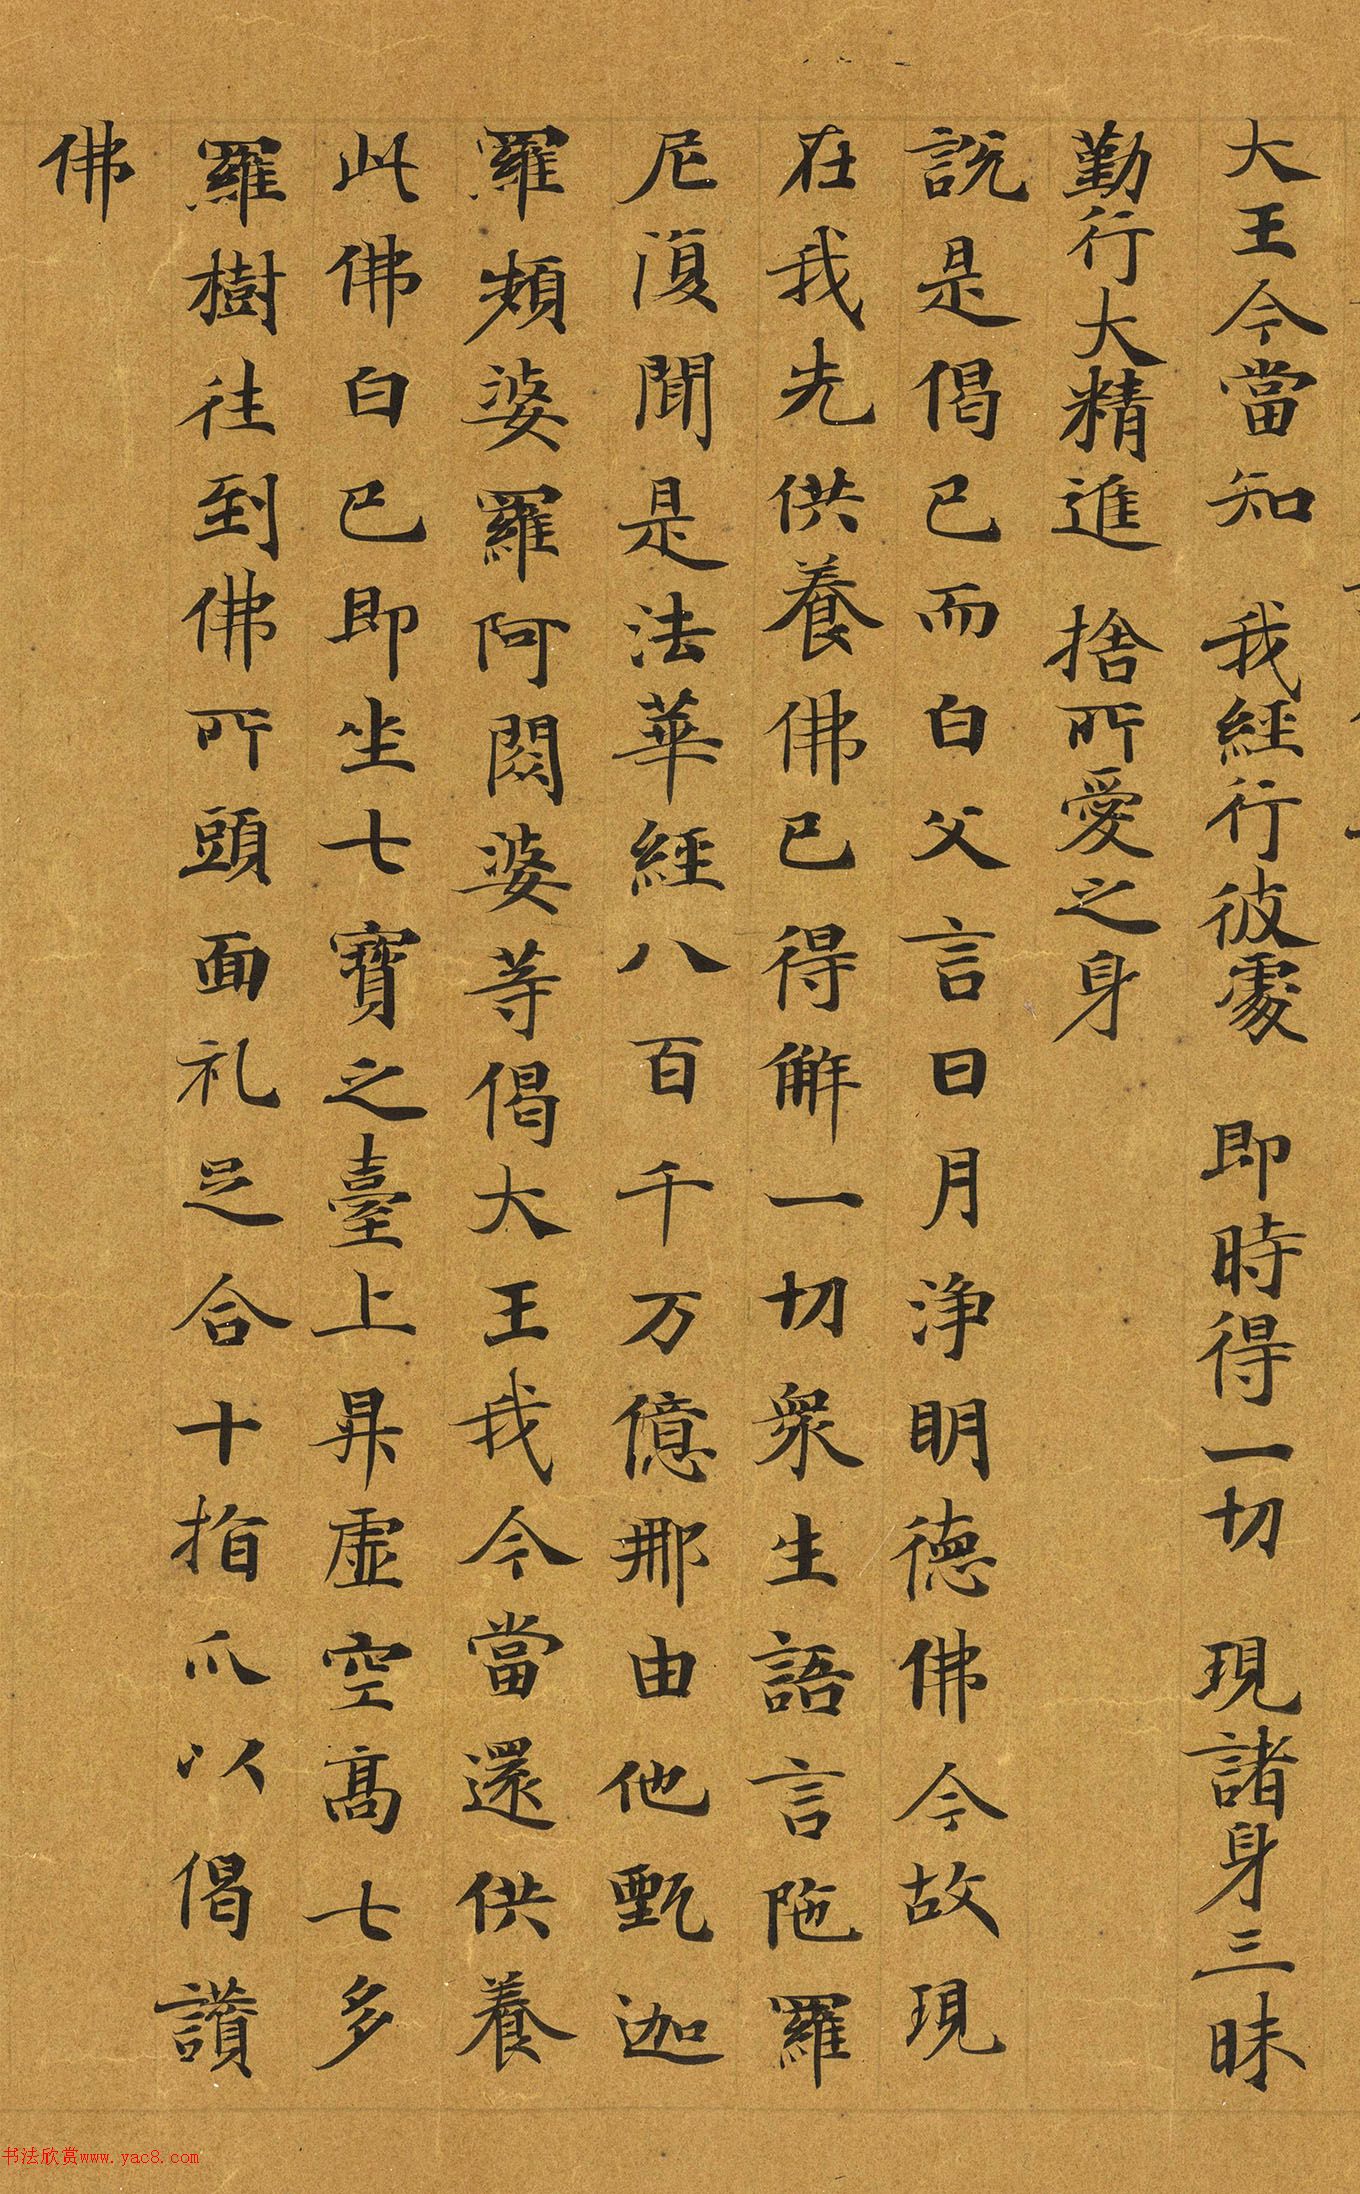 大王今當知　我經行彼處　即時得一切　現諸身三昧
勤行大精進　捨所愛之身
說是偈已而白父言日月淨明德佛今故現
在我先供養佛已得解一切眾生語言陁羅
尼復聞是法華經八百千万億那由他甄迦
羅頻婆羅阿閦婆等偈大王我今當還供養
此佛白已即坐七寶之臺上昇虛空高七多
羅樹往到佛所頭面礼足合十指爪以偈讚
佛
书法欣赏www.yac8.com